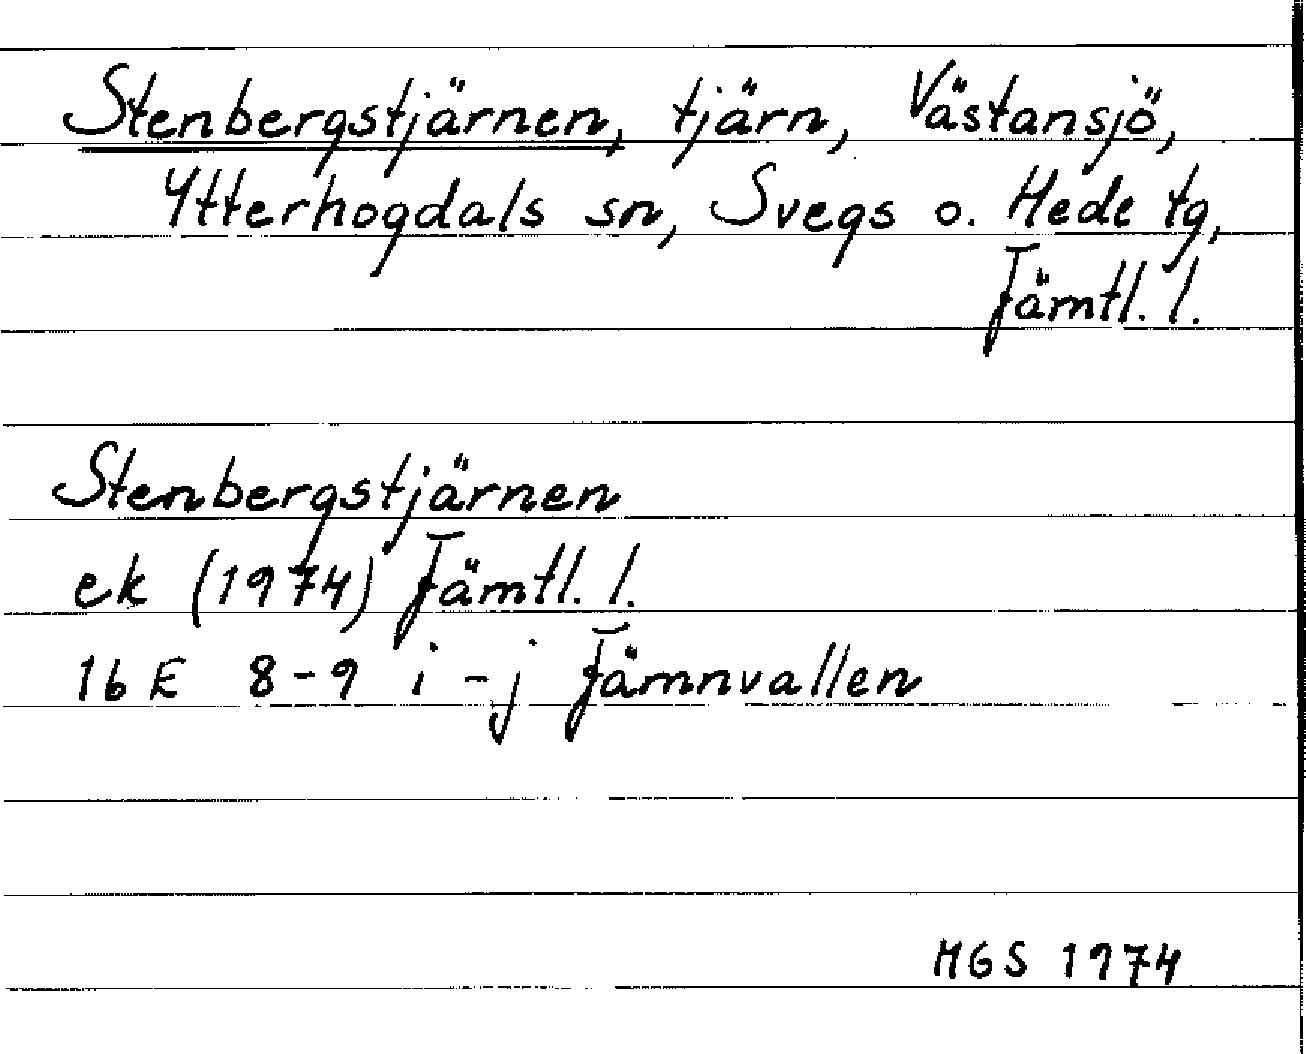 Stenbergstjärnen, tjärn, Västansjö,
Ytterhogdals sn, Svegs o. Hede tg,
Jämtl. l.
Stenbergstjärnen
ek (1974) Jämtl. l.
16 E 8-9 i-j Jämnvallen
MGS 1974